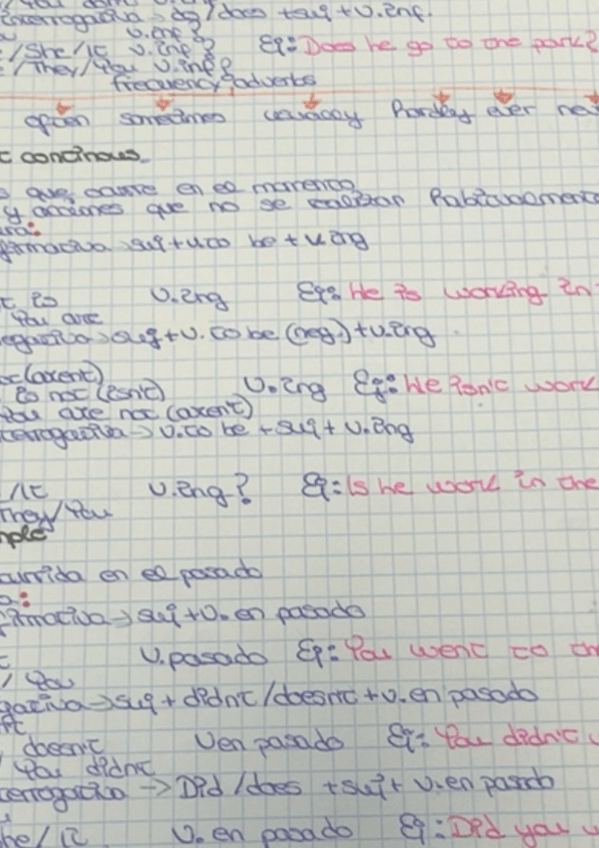 terrogativa → do/does + suj + v.inf.
v.inf?
/She/It v.inf? Ej: Does he go to the park?
/They/You v.inf?
frequency adverbs
often sometimes usually hardly ever ne
continous
que ocurre en el momento
y acciones que no se realizan habitualmente
firmativa → suj + v.to be + v.ing
is v.ing Ej: He is working in
You are
egativa → suj + v.to be (neg.) + v.ing
not (arent)
is not (isnt) v.ing Ej: He isn't work
You are not (arent)
terrogativa → v.to be + suj + v.ing
/It v.ing? Ej: Is he work in the
They/You
mple
urrida en el pasado
firmativa → suj + v. en pasado
v.pasado Ej: You went to th
/ You
gativa → suj + didnt/doesnt + v. en pasado
doesnt v en pasado Ej: You didn't
/ You didnt
terrogativa → Did/does + suj + v. en pasado
he/It v. en pasado Ej: Did you